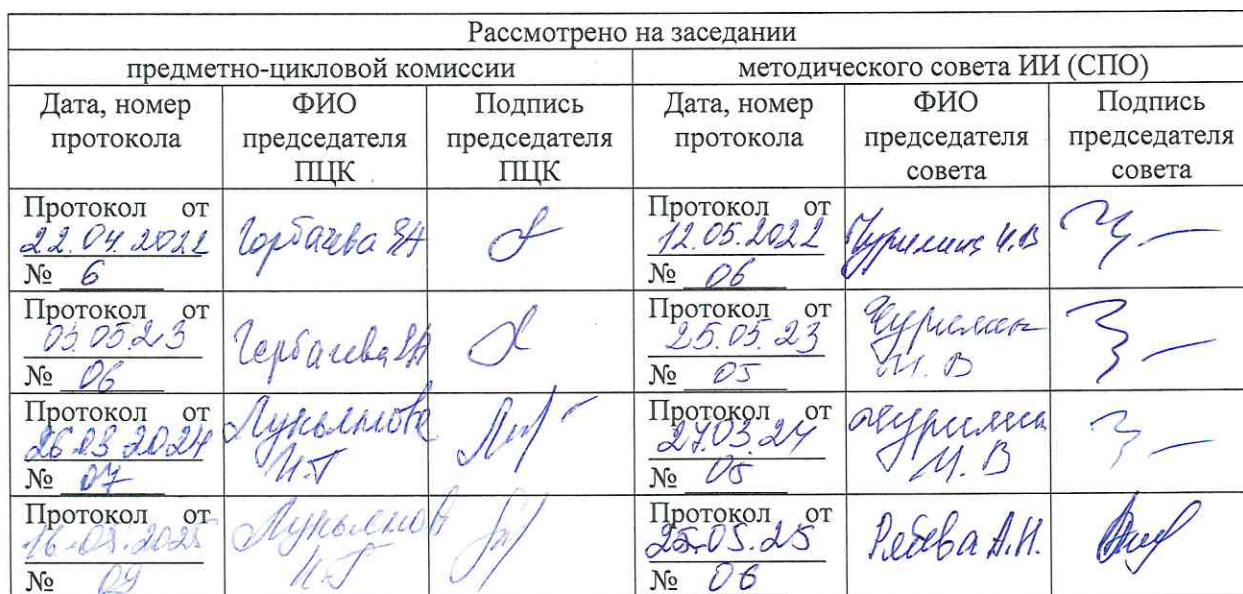 Рассмотрено на заседании
предметно-цикловой комиссии
методического совета ИИ (СПО)
Дата, номер
протокола
ФИО
председателя
ПЦК
Подпись
председателя
ПЦК
Дата, номер
протокола
ФИО
председателя
совета
Подпись
председателя
совета
Протокол от
22.04.2022
№ 6
Горбачева
Протокол от
12.05.2022
№ 06
Чурилин И.В
Протокол от
05.23
№ 06
Горбачева
Протокол от
25.05.23
№ 05
Чурилин
И. В
Протокол от
26.03.2024
№ 07
Лукьянова
И.Г
Протокол от
27.03.24
№ 05
Чурилин
И. В
Протокол от
2025
№ 09
Лукьянов
И.Г
Протокол от
25.05.25
№ 06
А.Н.